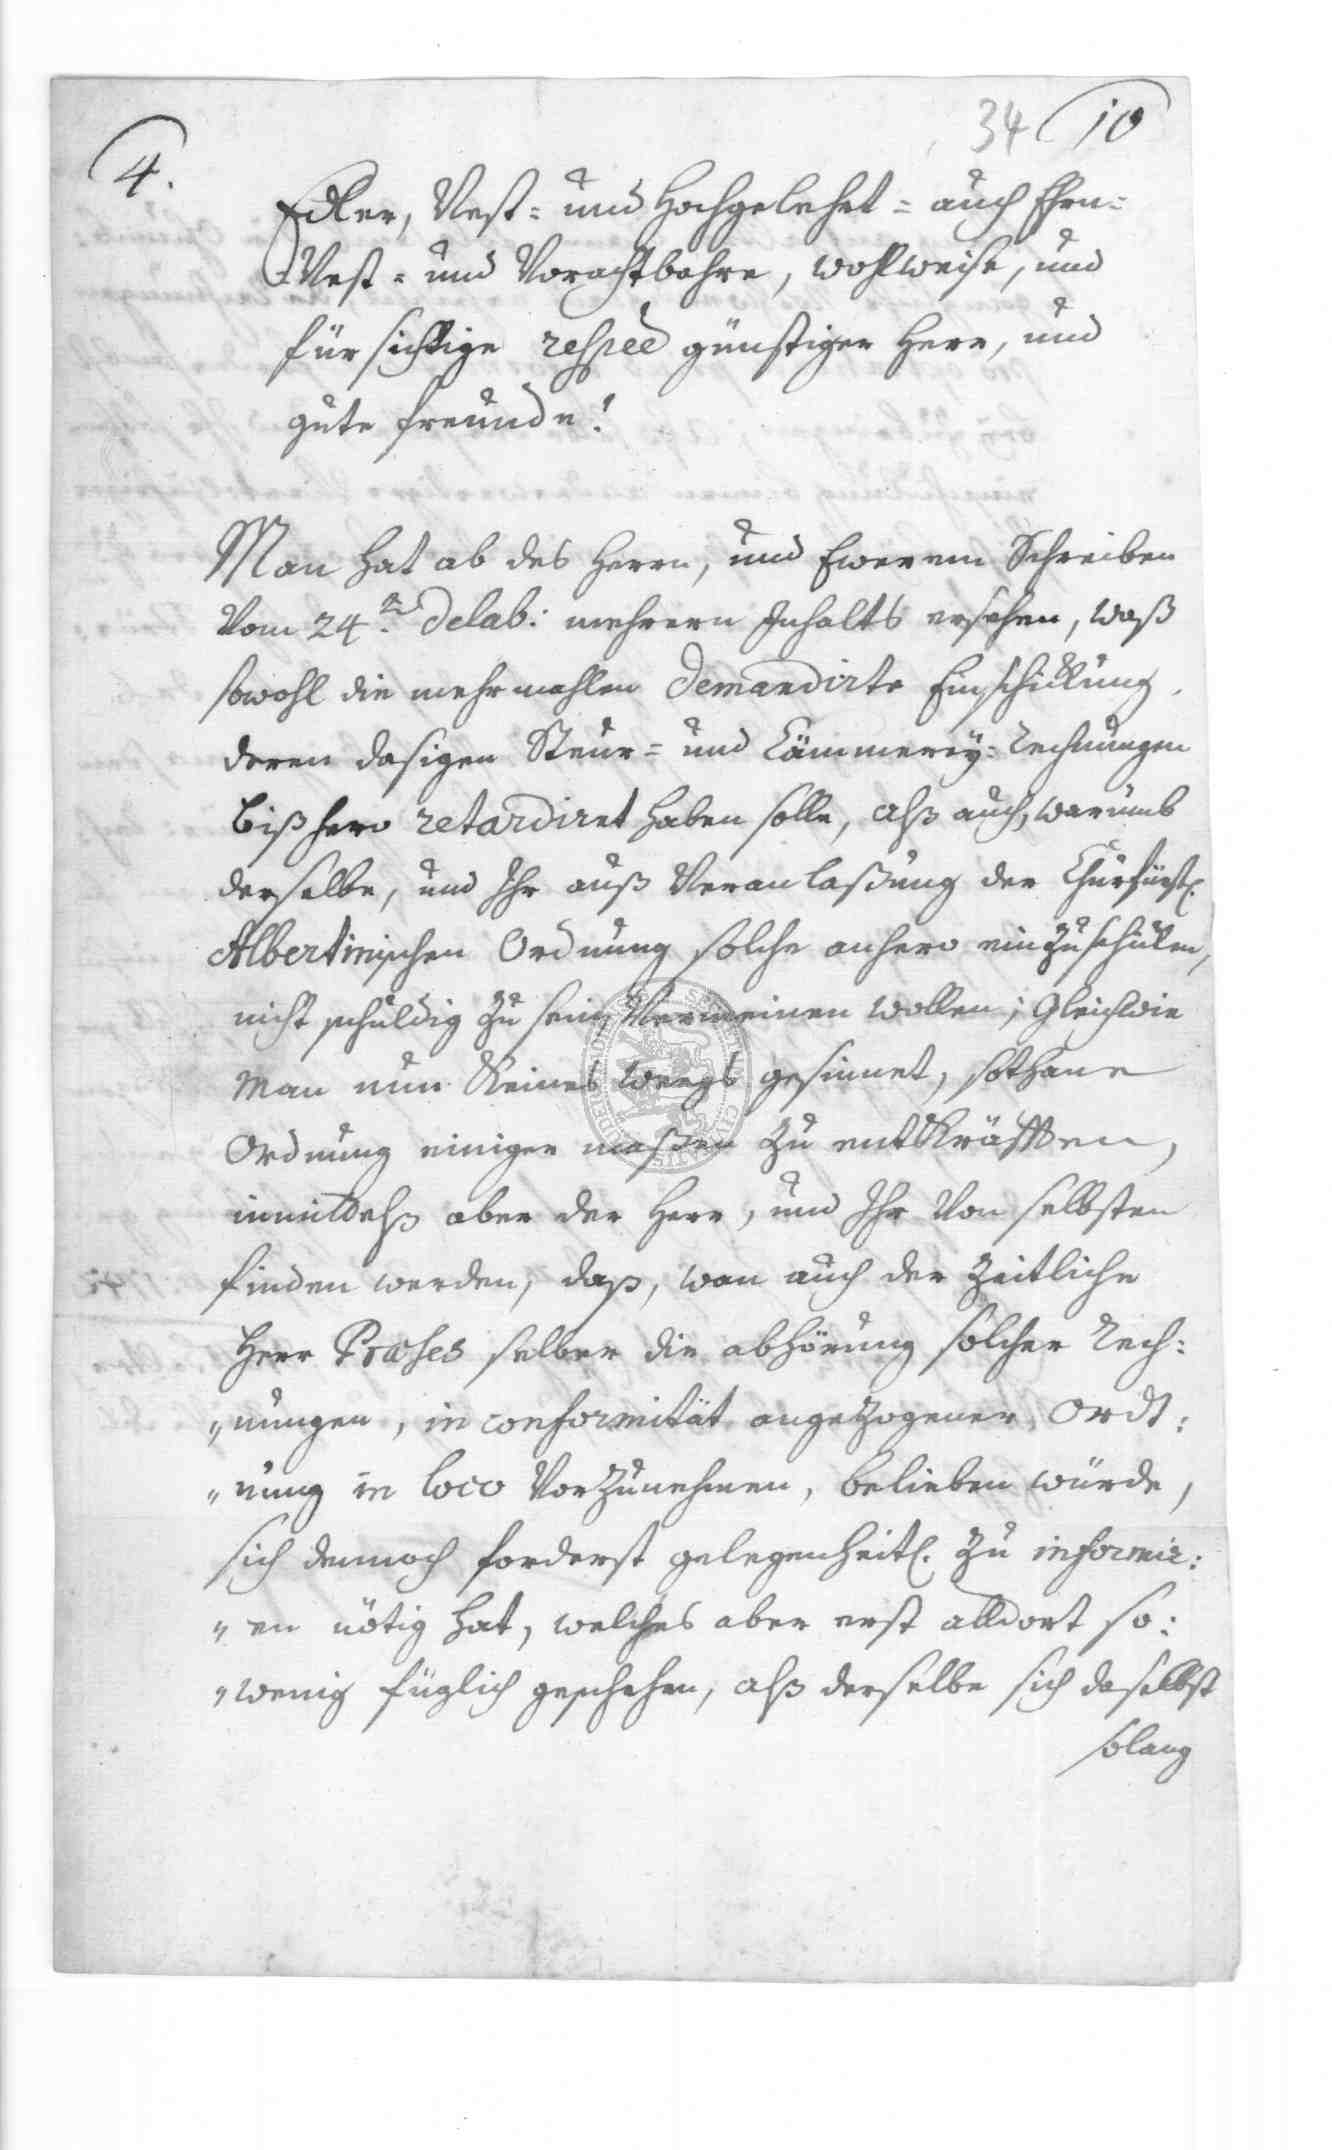 4.
34 10
Edler, Vest= und Hochgelehrt= auch Ehrn=
Vest= und Vorachtbahre, wohlweise, und
fürsichtige respec günstiger Herr, und
gute freunde!
Man hat ab des Herrn, und Ewerem Schreiben
Vom 24.ten delab: mehrern Inhalts ersehen, waß
sowohl die mehrmahlen demandirte Einschickung
deren dasigen Steur= und Cämmerey=Rechnungen
bißhero retardiret haben solle, alß auch, warumb
derselbe, und Ihr auß Veranlaßung der Churfürstl.
Albertinischen Ordnung solche anhero einzuschicken,
nicht schuldig zu sein, Vermeinen wollen; Gleichwie
Man nun Keines weegs gesinnet, sothane
Ordnung einiger maßen zu entkräfften,
inmitdelß aber der Herr, und Ihr Von selbsten
finden werden, daß, wan auch der zeitliche
Herr Præses selber die abhörung solcher Rech:
"nungen, in conformität angezogener Ordt:
"nung in loco Vorzunehmen, belieben würde,
sich dennoch forderst gelegenheitl. zu informir:
"en nötig hat, welches aber erst alldort so:
"wenig füglich geschehen, alß derselbe sich daselbst
solang